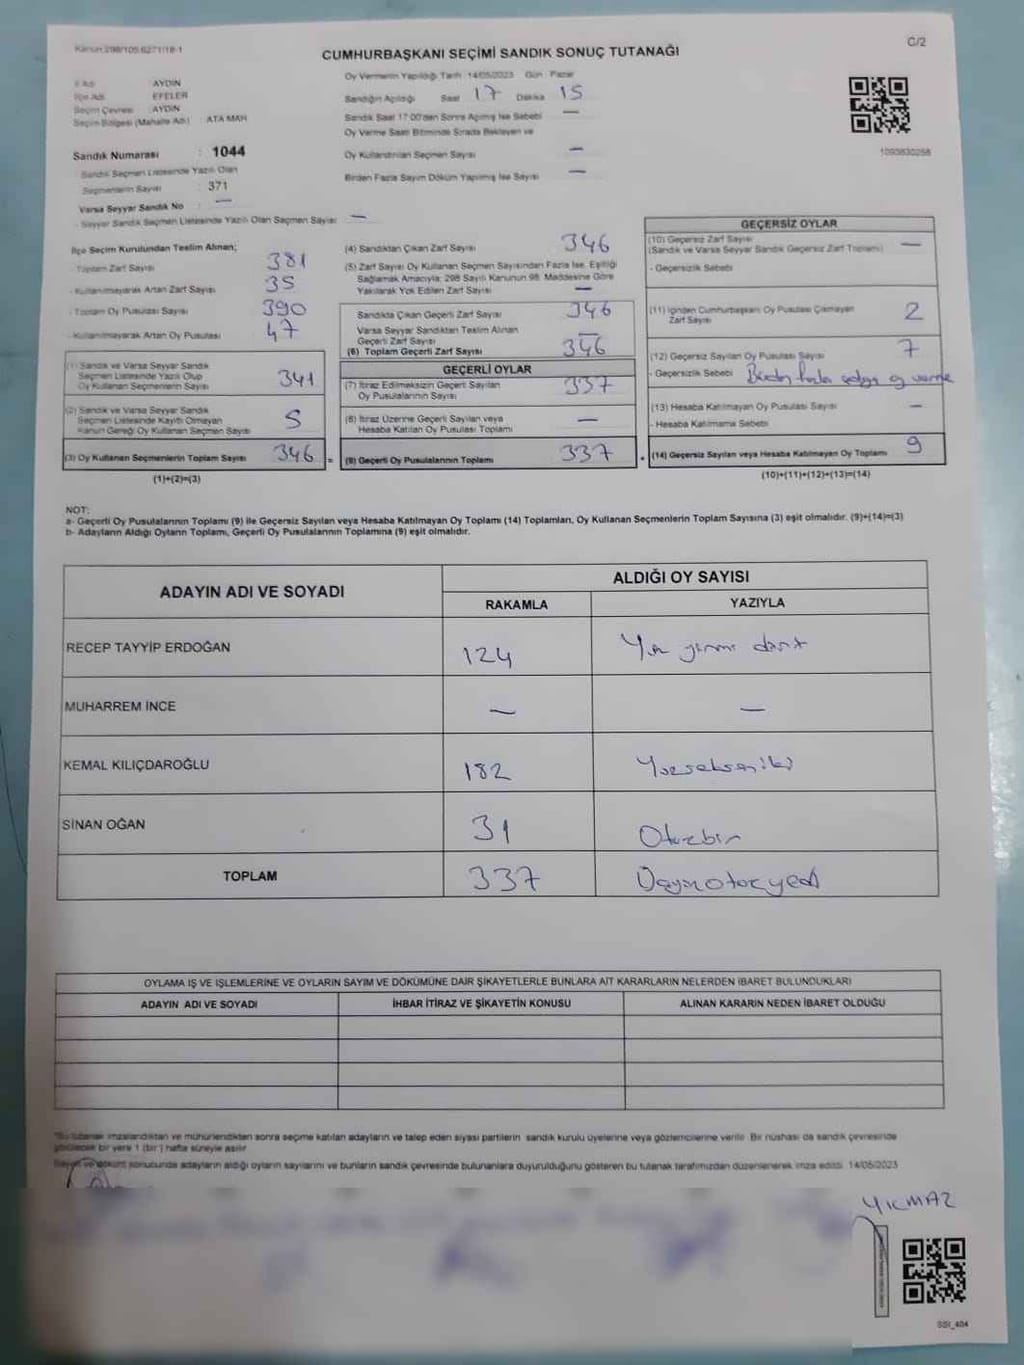 Kanun:298/105.6271/18-1
C/2
CUMHURBAŞKANI SEÇİMİ SANDIK SONUÇ TUTANAĞI
İl Adı AYDIN
İlçe Adı EFELER
Seçim Çevresi AYDIN
Seçim Bölgesi (Mahalle Adı) ATA MAH
Sandık Numarası : 1044
- Sandık Seçmen Listesinde Yazılı Olan
Seçmenlerin Sayısı : 371
Varsa Seyyar Sandık No —
- Seyyar Sandık Seçmen Listesinde Yazılı Olan Seçmen Sayısı —
Oy Vermenin Yapıldığı Tarih 14/05/2023 Gün Pazar
Sandığın Açıldığı Saat 17 Dakika 15
Sandık Saat 17:00'den Sonra Açılmış İse Sebebi —
Oy Verme Saati Bitiminde Sırada Bekleyen ve
Oy Kullandırılan Seçmen Sayısı —
Birden Fazla Sayım Döküm Yapılmış İse Sayısı —
1093630258
İlçe Seçim Kurulundan Teslim Alınan;
- Toplam Zarf Sayısı 381
- Kullanılmayarak Artan Zarf Sayısı 35
- Toplam Oy Pusulası Sayısı 390
- Kullanılmayarak Artan Oy Pusulası 47
(1) Sandık ve Varsa Seyyar Sandık
Seçmen Listesinde Yazılı Olup
Oy Kullanan Seçmenlerin Sayısı 341
(2) Sandık ve Varsa Seyyar Sandık
Seçmen Listesinde Kayıtlı Olmayan
Kanun Gereği Oy Kullanan Seçmen Sayısı 5
(3) Oy Kullanan Seçmenlerin Toplam Sayısı 346 =
(1)+(2)=(3)
(4) Sandıktan Çıkan Zarf Sayısı 346
(5) Zarf Sayısı Oy Kullanan Seçmen Sayısından Fazla İse, Eşitliği
Sağlamak Amacıyla; 298 Sayılı Kanunun 98. Maddesine Göre
Yakılarak Yok Edilen Zarf Sayısı —
Sandıkta Çıkan Geçerli Zarf Sayısı 346
Varsa Seyyar Sandıktan Teslim Alınan
Geçerli Zarf Sayısı —
(6) Toplam Geçerli Zarf Sayısı 346
GEÇERLİ OYLAR
(7) İtiraz Edilmeksizin Geçerli Sayılan
Oy Pusulalarının Sayısı 337
(8) İtiraz Üzerine Geçerli Sayılan veya
Hesaba Katılan Oy Pusulası Toplamı —
(9) Geçerli Oy Pusulalarının Toplamı 337 +
GEÇERSİZ OYLAR
(10) Geçersiz Zarf Sayısı
(Sandık ve Varsa Seyyar Sandık Geçersiz Zarf Toplamı) —
- Geçersizlik Sebebi
(11) İçinden Cumhurbaşkanı Oy Pusulası Çıkmayan
Zarf Sayısı 2
(12) Geçersiz Sayılan Oy Pusulası Sayısı 7
- Geçersizlik Sebebi Birden fazla oy verme
(13) Hesaba Katılmayan Oy Pusulası Sayısı —
- Hesaba Katılmama Sebebi
(14) Geçersiz Sayılan veya Hesaba Katılmayan Oy Toplamı 9
(10)+(11)+(12)+(13)=(14)
NOT:
a- Geçerli Oy Pusulalarının Toplamı (9) ile Geçersiz Sayılan veya Hesaba Katılmayan Oy Toplamı (14) Toplamları, Oy Kullanan Seçmenlerin Toplam Sayısına (3) eşit olmalıdır. (9)+(14)=(3)
b- Adayların Aldığı Oyların Toplamı, Geçerli Oy Pusulalarının Toplamına (9) eşit olmalıdır.
ADAYIN ADI VE SOYADI
ALDIĞI OY SAYISI
RAKAMLA YAZIYLA
RECEP TAYYİP ERDOĞAN 124 Yüz yirmi dört
MUHARREM İNCE — —
KEMAL KILIÇDAROĞLU 182 Yüzseksen iki
SİNAN OĞAN 31 Otuzbir
TOPLAM 337 Üçyüzotuzyedi
OYLAMA İŞ VE İŞLEMLERİNE VE OYLARIN SAYIM VE DÖKÜMÜNE DAİR ŞİKAYETLERLE BUNLARA AİT KARARLARIN NELERDEN İBARET BULUNDUKLARI
ADAYIN ADI VE SOYADI İHBAR İTİRAZ VE ŞİKAYETİN KONUSU ALINAN KARARIN NEDEN İBARET OLDUĞU
"Bu tutanak imzalandıktan ve mühürlendikten sonra seçime katılan adayların ve talep eden siyasi partilerin sandık kurulu üyelerine veya gözlemcilerine verilir. Bir nüshası da sandık çevresinde
görülecek bir yere 1 (bir) hafta süreyle asılır
Sayım ve döküm sonucunda adayların aldığı oyların sayılarını ve bunların sandık çevresinde bulunanlara duyurulduğunu gösteren bu tutanak tarafımızdan düzenlenerek imza edildi. 14/05/2023
YILMAZ
SSI_404